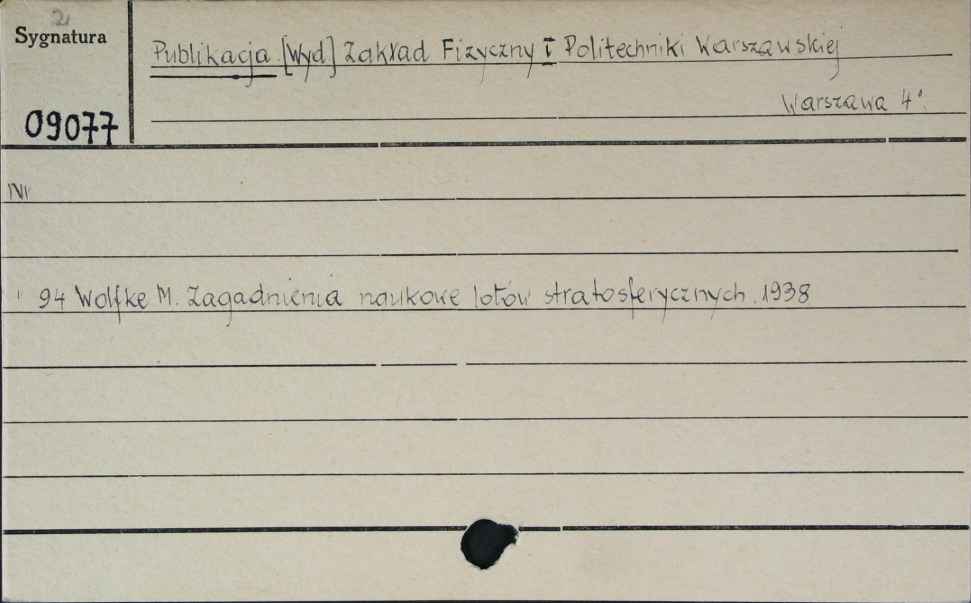 2
Sygnatura
Publikacja [Wyd] Zakład Fizyczny I Politechniki Warszawskiej
09077
Warszawa 4°.
Nr
94 Wolfke M. Zagadnienia naukowe lotów stratosferycznych. 1938